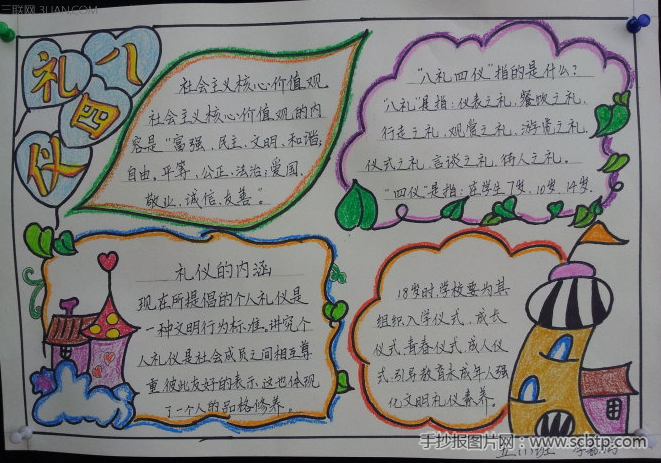 三联网 3LIAN.COM
八
礼
四
仪
社会主义核心价值观
社会主义核心价值观的内
容是“富强、民主、文明、和谐,
自由、平等、公正、法治;爱国、
敬业、诚信、友善”。
“八礼四仪”指的是什么?
“八礼”是指:仪表之礼、餐饮之礼、
行走之礼、观赏之礼、游览之礼、
仪式之礼、言谈之礼、待人之礼。
“四仪”是指:在学生7岁、10岁、14岁、
礼仪的内涵
现在所提倡的个人礼仪是
一种文明行为标准。讲究个
人礼仪是社会成员之间相互尊
重,彼此友好的表示,这也体现
了一个人的品格修养。
18岁时,学校要为其
组织入学仪式、成长
仪式、青春仪式、成人仪
式,引导教育未成年人强
化文明礼仪素养。
手抄报图片网:www.scbtp.com